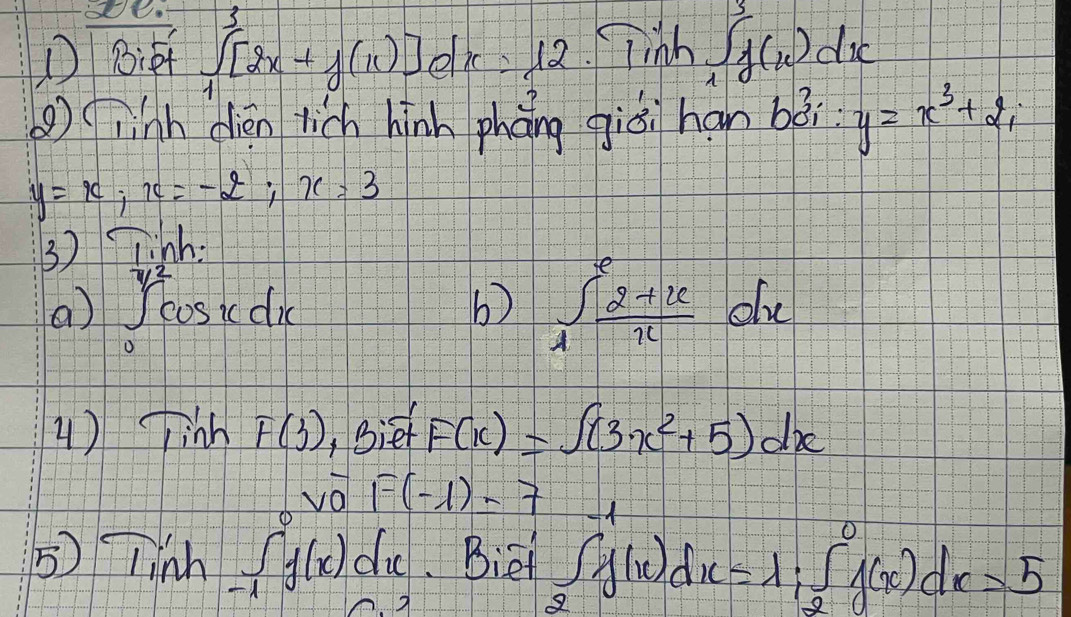 1) Biết ∫₁³ [2x + f(x)] dx = 12. Tính ∫₁³ f(x) dx
2) Tính diện tích hình phẳng giới hạn bởi: y = x³ + 2;
y = x; x = -2; x = 3
3) Tính:
a) ∫₀^(π/2) cos x dx b) ∫₁^e (2 + x)/x dx
4) Tính F(3), Biết F(x) = ∫(3x² + 5) dx
và F(-1) = 7
5) Tính ∫₋₁⁰ f(x) dx. Biết ∫₂⁻¹ f(x) dx = 1; ∫₂⁰ f(x) dx = 5